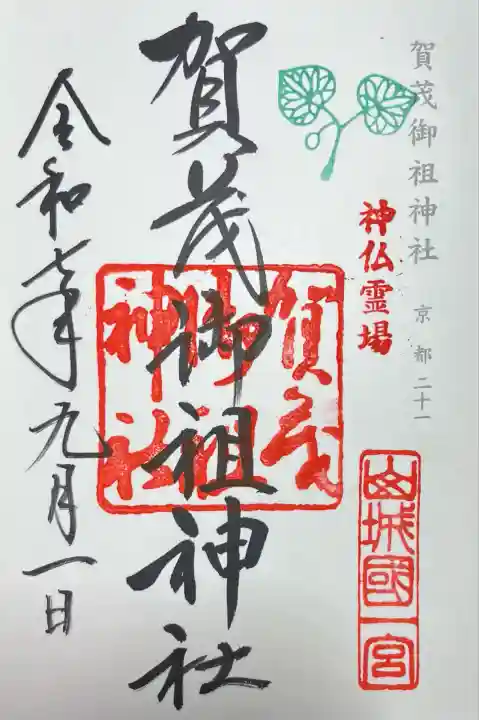 賀茂御祖神社
京都二十一
神仏霊場
山城國一宮
賀茂御祖神社
賀茂
御祖
神社
令和七年九月一日